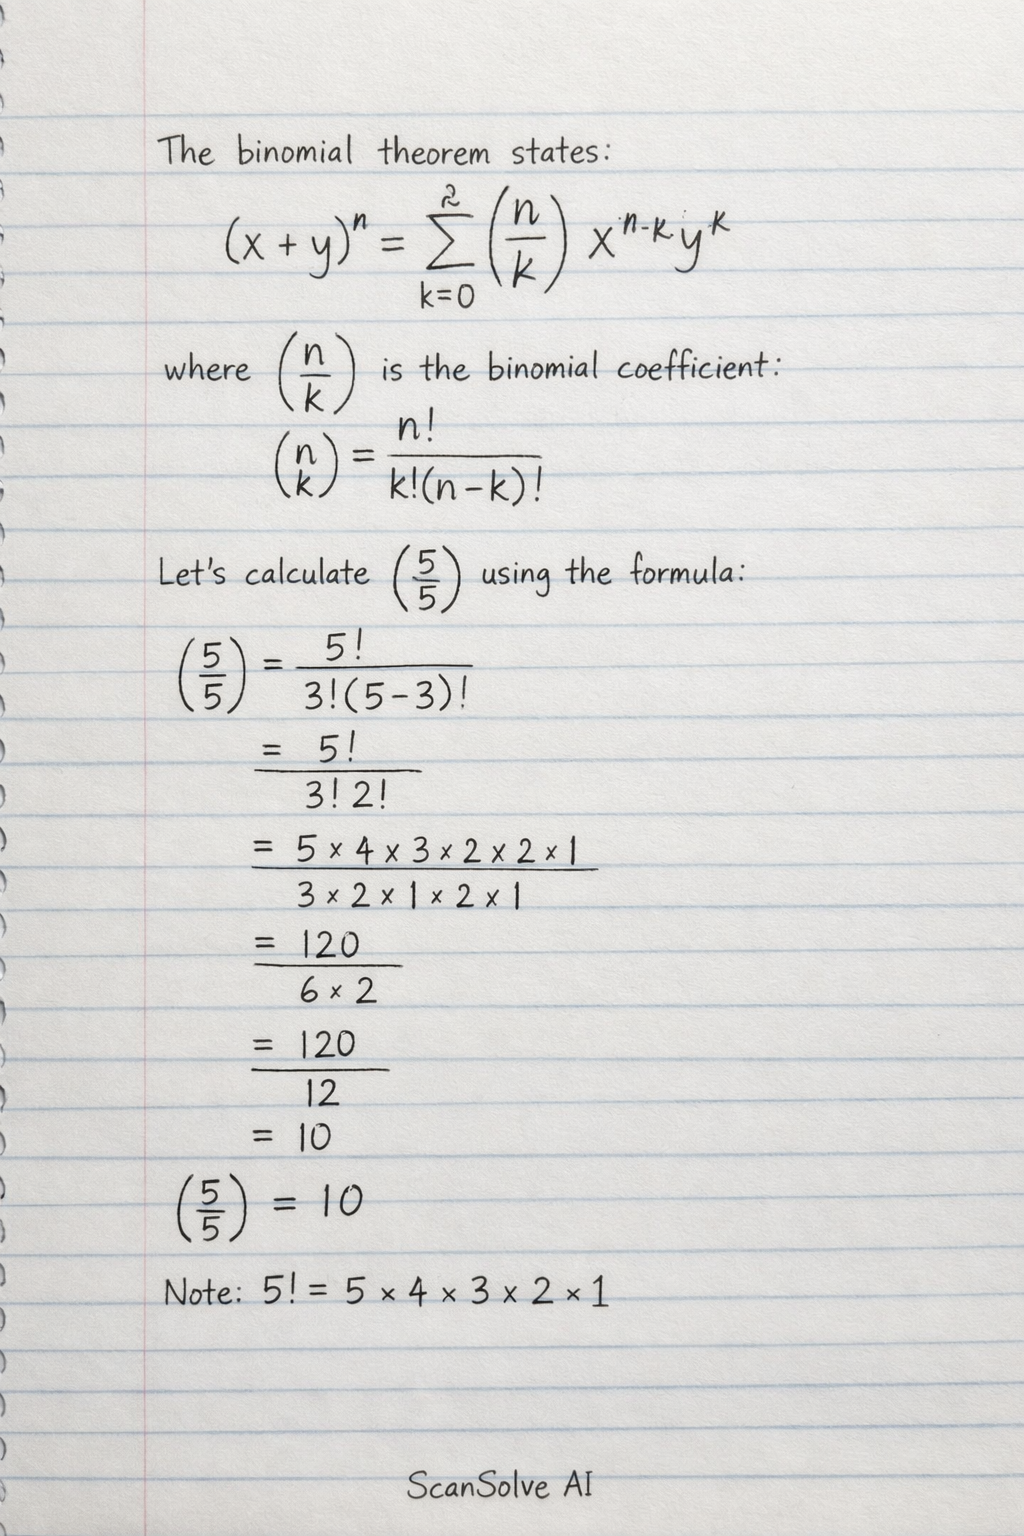 The binomial theorem states:
(x + y)^n = ∑_{k=0}^{2} (n/k) x^{n-k} y^k
where (n/k) is the binomial coefficient:
(n k) = n! / k!(n-k)!
Let's calculate (5/5) using the formula:
(5/5) = 5! / 3!(5-3)!
= 5! / 3! 2!
= 5 × 4 × 3 × 2 × 2 × 1 / 3 × 2 × 1 × 2 × 1
= 120 / 6 × 2
= 120 / 12
= 10
(5/5) = 10
Note: 5! = 5 × 4 × 3 × 2 × 1
ScanSolve AI